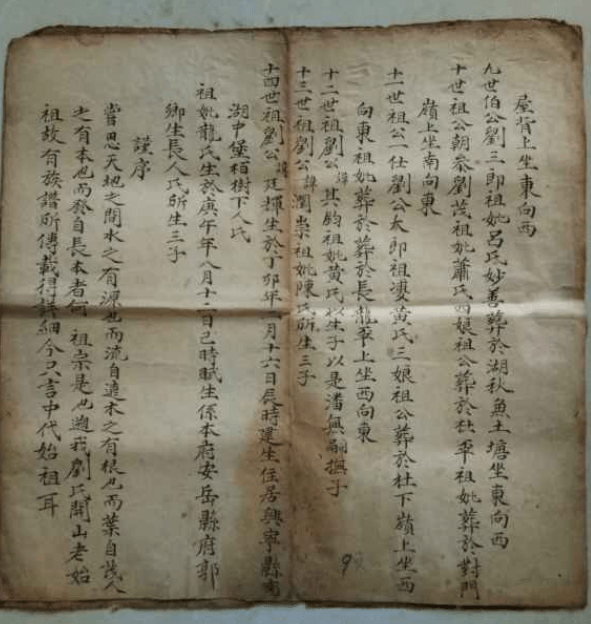 屋背上坐東向西
九世伯公劉三郎祖妣呂氏妙善葬於湖秋魚土塘坐東向西
十世祖公朝奉劉茂祖妣蕭氏四娘祖公葬於杜平祖妣葬於對門
嶺上坐南向東
十一世祖公一仕劉公太郎祖婆黃氏三娘祖公葬於杜下嶺上坐西
向東祖妣葬於葬於長龍平上坐西向東
十二世祖劉公諱其鈞祖妣黃氏以生子以是潘無嗣撫子
十三世祖劉公諱潤崇祖妣陳氏所生三子
十四世祖劉公諱廷輝生於丁卯年月十六日辰時建生住居興寧縣南
湖中堡栢樹下人氏
祖妣龍氏生於庚午年八月十二日巳時賦生係本府安岳縣府郭
鄉生長人氏所生三子
謹序
嘗思天地之間水之有源也而流自遠木之有根也而葉自茂人
之有本也而發自長本者何祖宗是也遡我劉氏開山老始
祖故有族譜所傳載得詳細今只言中代始祖耳
9